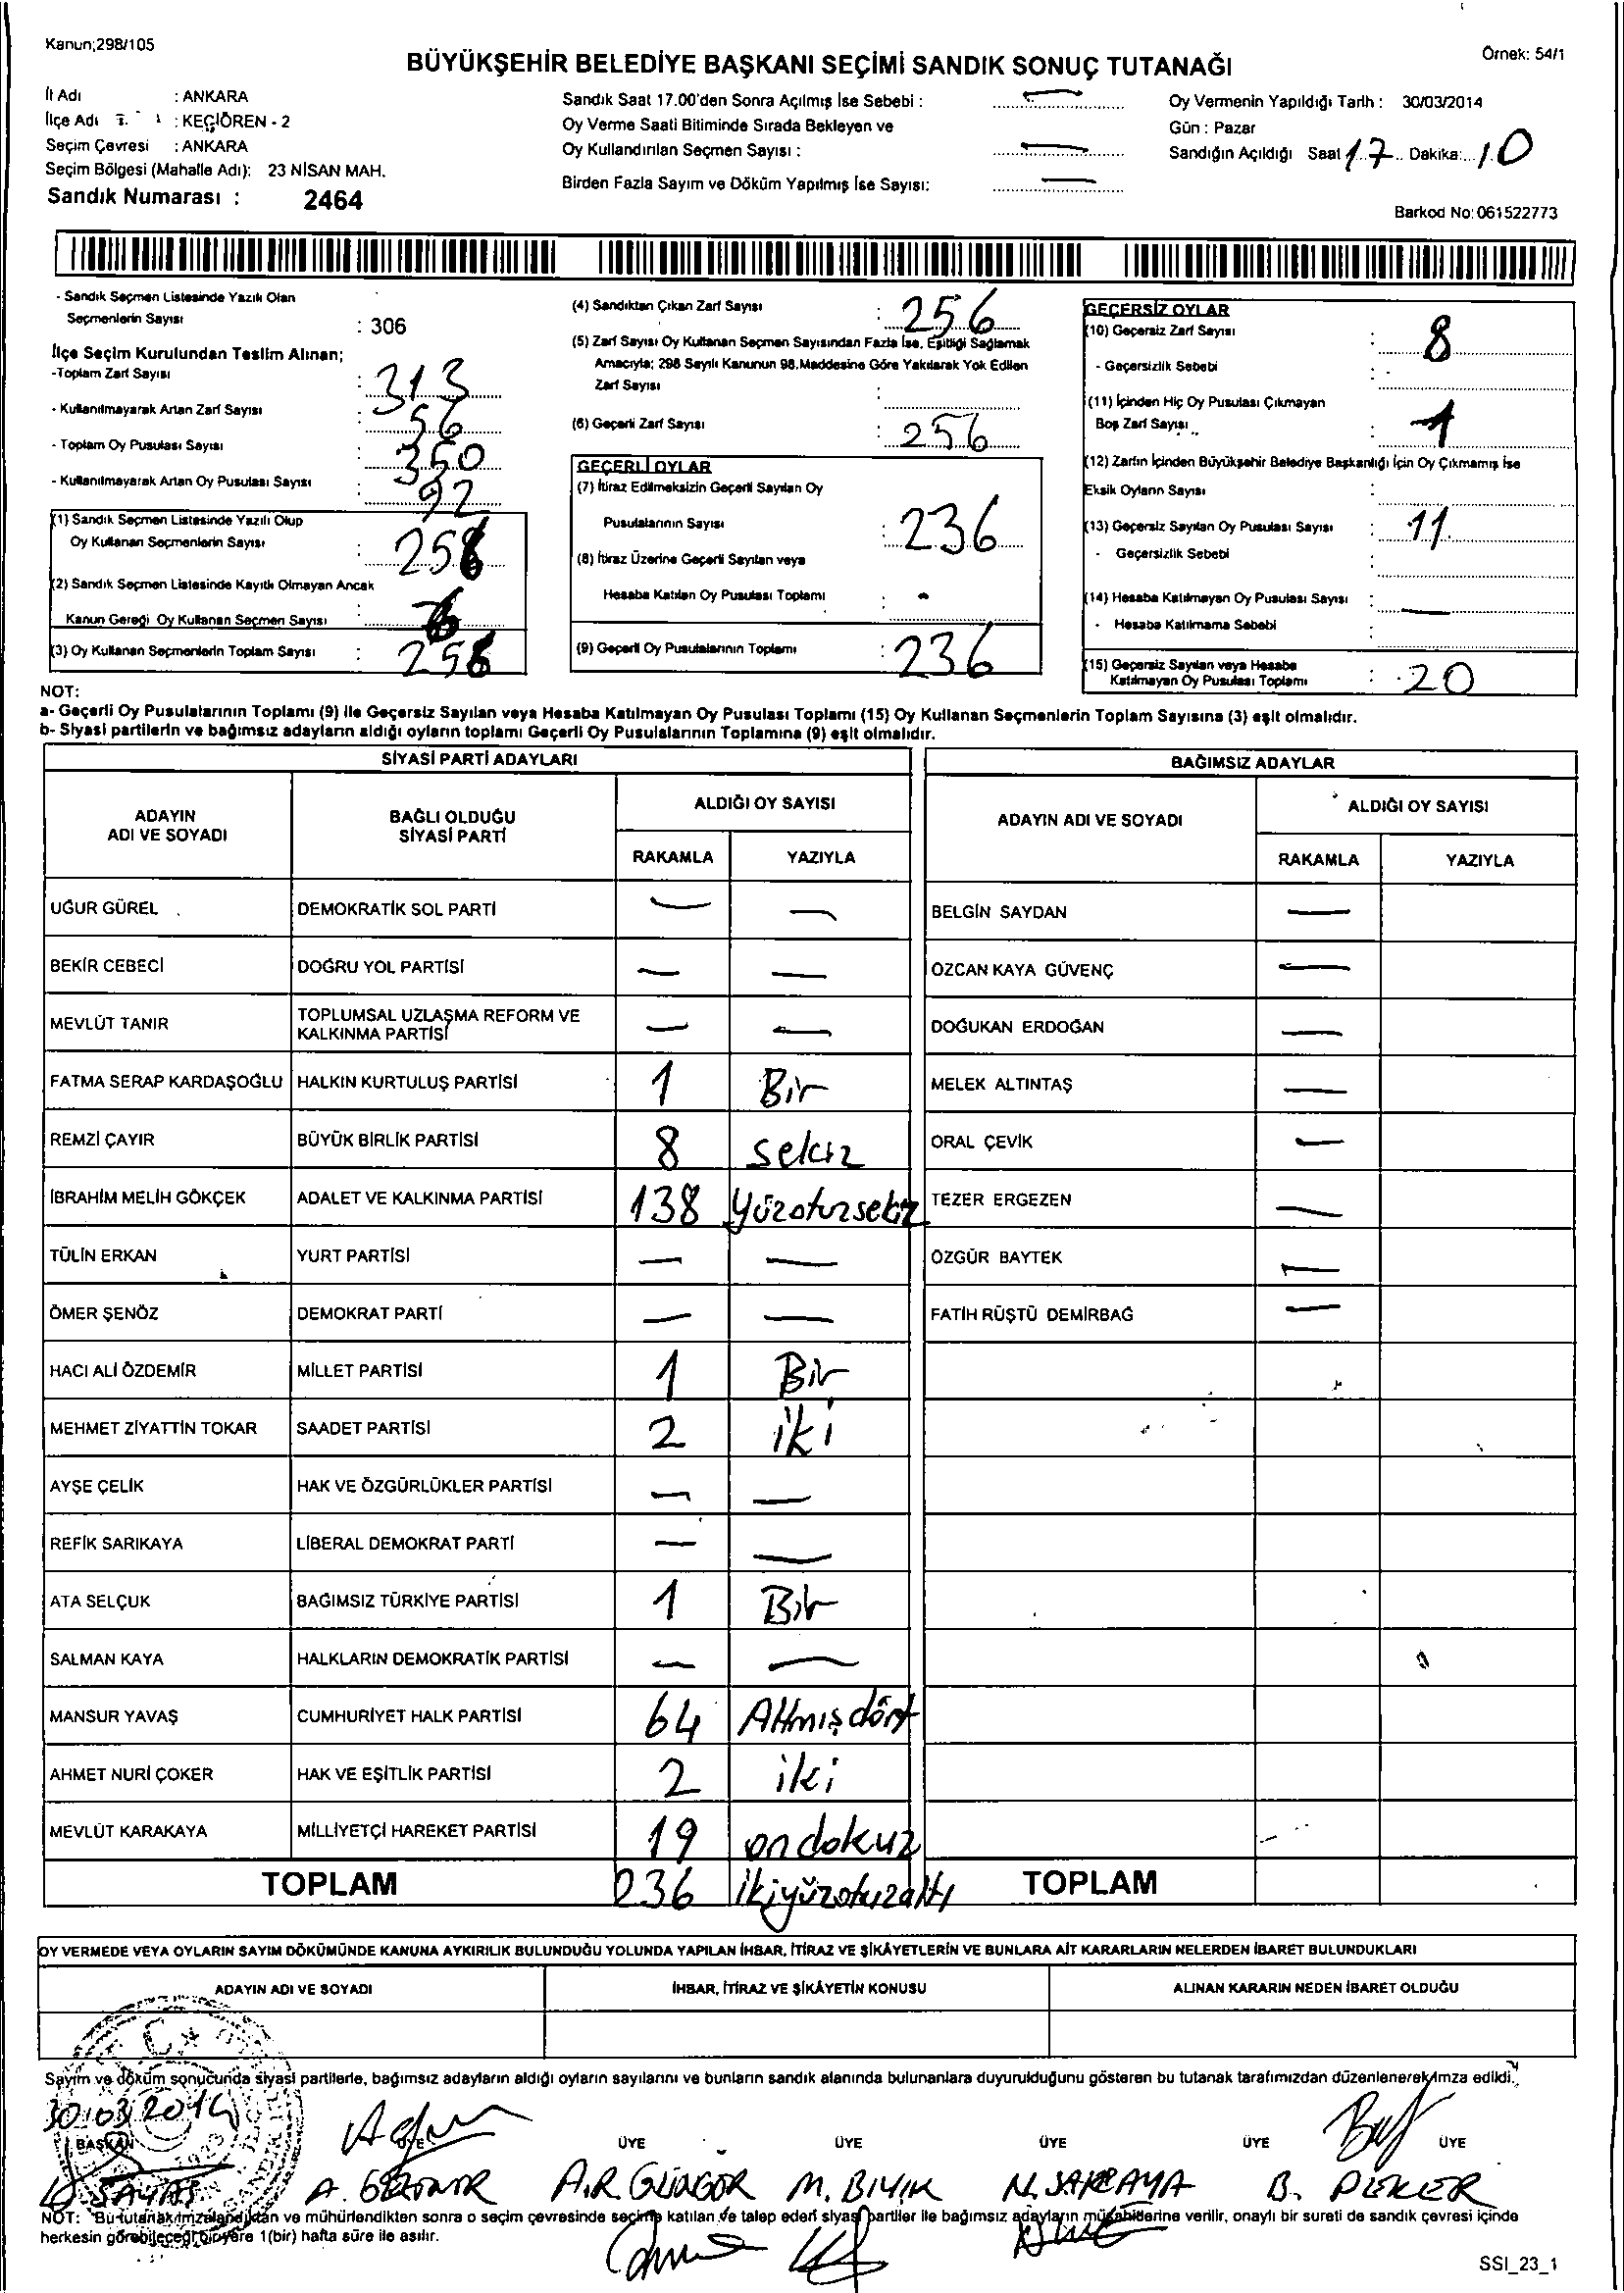 Kanun;298/105
Örnek: 54/1
BÜYÜKŞEHİR BELEDİYE BAŞKANI SEÇİMİ SANDIK SONUÇ TUTANAĞI
İl Adı : ANKARA
İlçe Adı : KEÇİÖREN - 2
Seçim Çevresi : ANKARA
Seçim Bölgesi (Mahalle Adı): 23 NİSAN MAH.
Sandık Numarası : 2464
Sandık Saat 17.00'den Sonra Açılmış İse Sebebi : —
Oy Verme Saati Bitiminde Sırada Bekleyen ve
Oy Kullandırılan Seçmen Sayısı : —
Birden Fazla Sayım ve Döküm Yapılmış İse Sayısı: —
Oy Vermenin Yapıldığı Tarih : 30/03/2014
Gün : Pazar
Sandığın Açıldığı Saat 17 Dakika: 10
Barkod No: 061522773
- Sandık Seçmen Listesinde Yazılı Olan
Seçmenlerin Sayısı : 306
İlçe Seçim Kurulundan Teslim Alınan;
-Toplam Zarf Sayısı : 313
- Kullanılmayarak Artan Zarf Sayısı : 56
- Toplam Oy Pusulası Sayısı : 350
- Kullanılmayarak Artan Oy Pusulası Sayısı : 92
(1) Sandık Seçmen Listesinde Yazılı Olup
Oy Kullanan Seçmenlerin Sayısı :
(2) Sandık Seçmen Listesinde Kayıtlı Olmayan Ancak
Kanun Gereği Oy Kullanan Seçmen Sayısı :
(3) Oy Kullanan Seçmenlerin Toplam Sayısı : 256
(4) Sandıktan Çıkan Zarf Sayısı : 256
(5) Zarf Sayısı Oy Kullanan Seçmen Sayısından Fazla İse, Eşitliği Sağlamak
Amacıyla; 298 Sayılı Kanunun 98.Maddesine Göre Yakılarak Yok Edilen
Zarf Sayısı :
(6) Geçerli Zarf Sayısı : 256
GEÇERLİ OYLAR
(7) İtiraz Edilmeksizin Geçerli Sayılan Oy
Pusulalarının Sayısı : 236
(8) İtiraz Üzerine Geçerli Sayılan veya
Hesaba Katılan Oy Pusulası Toplamı : -
(9) Geçerli Oy Pusulalarının Toplamı : 236
GEÇERSİZ OYLAR
(10) Geçersiz Zarf Sayısı : 8
- Geçersizlik Sebebi :
(11) İçinden Hiç Oy Pusulası Çıkmayan
Boş Zarf Sayısı : 1
(12) Zarfın İçinden Büyükşehir Belediye Başkanlığı İçin Oy Çıkmamış İse
Eksik Oyların Sayısı :
(13) Geçersiz Sayılan Oy Pusulası Sayısı : 11
- Geçersizlik Sebebi
(14) Hesaba Katılmayan Oy Pusulası Sayısı : —
- Hesaba Katılmama Sebebi :
(15) Geçersiz Sayılan veya Hesaba
Katılmayan Oy Pusulası Toplamı : 20
NOT:
a- Geçerli Oy Pusulalarının Toplamı (9) ile Geçersiz Sayılan veya Hesaba Katılmayan Oy Pusulası Toplamı (15) Oy Kullanan Seçmenlerin Toplam Sayısına (3) eşit olmalıdır.
b- Siyasi partilerin ve bağımsız adayların aldığı oyların toplamı Geçerli Oy Pusulalarının Toplamına (9) eşit olmalıdır.
SİYASİ PARTİ ADAYLARI
ADAYIN ADI VE SOYADI
BAĞLI OLDUĞU SİYASİ PARTİ
ALDIĞI OY SAYISI
RAKAMLA YAZIYLA
UĞUR GÜREL DEMOKRATİK SOL PARTİ — —
BEKİR CEBECİ DOĞRU YOL PARTİSİ — —
MEVLÜT TANIR TOPLUMSAL UZLAŞMA REFORM VE KALKINMA PARTİSİ — —
FATMA SERAP KARDAŞOĞLU HALKIN KURTULUŞ PARTİSİ 1 Bir
REMZİ ÇAYIR BÜYÜK BİRLİK PARTİSİ 8 sekiz
İBRAHİM MELİH GÖKÇEK ADALET VE KALKINMA PARTİSİ 138 Yüzotuzsekiz
TÜLİN ERKAN YURT PARTİSİ — —
ÖMER ŞENÖZ DEMOKRAT PARTİ — —
HACI ALİ ÖZDEMİR MİLLET PARTİSİ 1 Bir
MEHMET ZİYATTİN TOKAR SAADET PARTİSİ 2 iki
AYŞE ÇELİK HAK VE ÖZGÜRLÜKLER PARTİSİ — —
REFİK SARIKAYA LİBERAL DEMOKRAT PARTİ — —
ATA SELÇUK BAĞIMSIZ TÜRKİYE PARTİSİ 1 Bir
SALMAN KAYA HALKLARIN DEMOKRATİK PARTİSİ — —
MANSUR YAVAŞ CUMHURİYET HALK PARTİSİ 64 Altmışdört
AHMET NURİ ÇOKER HAK VE EŞİTLİK PARTİSİ 2 iki
MEVLÜT KARAKAYA MİLLİYETÇİ HAREKET PARTİSİ 19 ondokuz
TOPLAM 236 ikiyüzotuzaltı
BAĞIMSIZ ADAYLAR
ADAYIN ADI VE SOYADI
ALDIĞI OY SAYISI
RAKAMLA YAZIYLA
BELGİN SAYDAN —
ÖZCAN KAYA GÜVENÇ —
DOĞUKAN ERDOĞAN —
MELEK ALTINTAŞ —
ORAL ÇEVİK —
TEZER ERGEZEN —
ÖZGÜR BAYTEK —
FATİH RÜŞTÜ DEMİRBAĞ —
TOPLAM
OY VERMEDE VEYA OYLARIN SAYIM DÖKÜMÜNDE KANUNA AYKIRILIK BULUNDUĞU YOLUNDA YAPILAN İHBAR, İTİRAZ VE ŞİKÂYETLERİN VE BUNLARA AİT KARARLARIN NELERDEN İBARET BULUNDUKLARI
ADAYIN ADI VE SOYADI İHBAR, İTİRAZ VE ŞİKÂYETİN KONUSU ALINAN KARARIN NEDEN İBARET OLDUĞU
Sayım ve döküm sonucunda siyasi partilerle, bağımsız adayların aldığı oyların sayılarını ve bunların sandık alanında bulunanlara duyurulduğunu gösteren bu tutanak tarafımızdan düzenlenerek imza edildi.
30.03.2014
BAŞKAN ÜYE ÜYE ÜYE ÜYE ÜYE ÜYE
A.R. GÜNGÖR M. BIYIK
NOT: Bu tutanak imzalandıktan ve mühürlendikten sonra o seçim çevresinde seçime katılan ve talep eden siyasi partiler ile bağımsız adayların müşahitlerine verilir, onaylı bir sureti de sandık çevresi içinde
herkesin görebileceği bir yere 1(bir) hafta süre ile asılır.
SSI_23_1